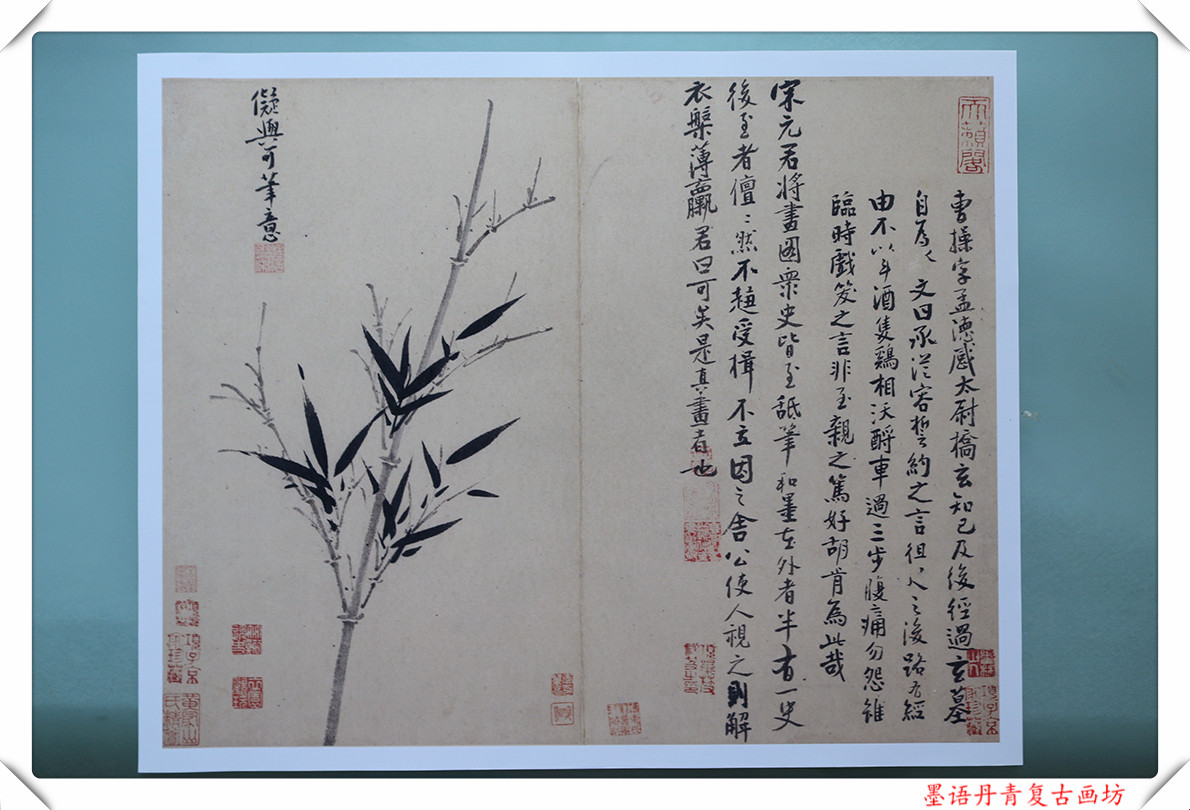 天籟閣
曹操字孟德感太尉橋玄知己及後經過玄墓
自為文曰承從容誓約之言徂之後路有經
由不以斗酒隻鷄相沃酹車過三步腹痛勿怨雖
臨時戲笑之言非至親之篤好胡肯為此哉
宋元君將畫圖衆史皆至舐筆和墨在外者半有一史
後至者儃〻然不趨受揖不立因之舍公使人視之則解
衣槃薄臝君曰可矣是真畫者也
儗與可筆意
項子京家珍藏
墨语丹青复古画坊